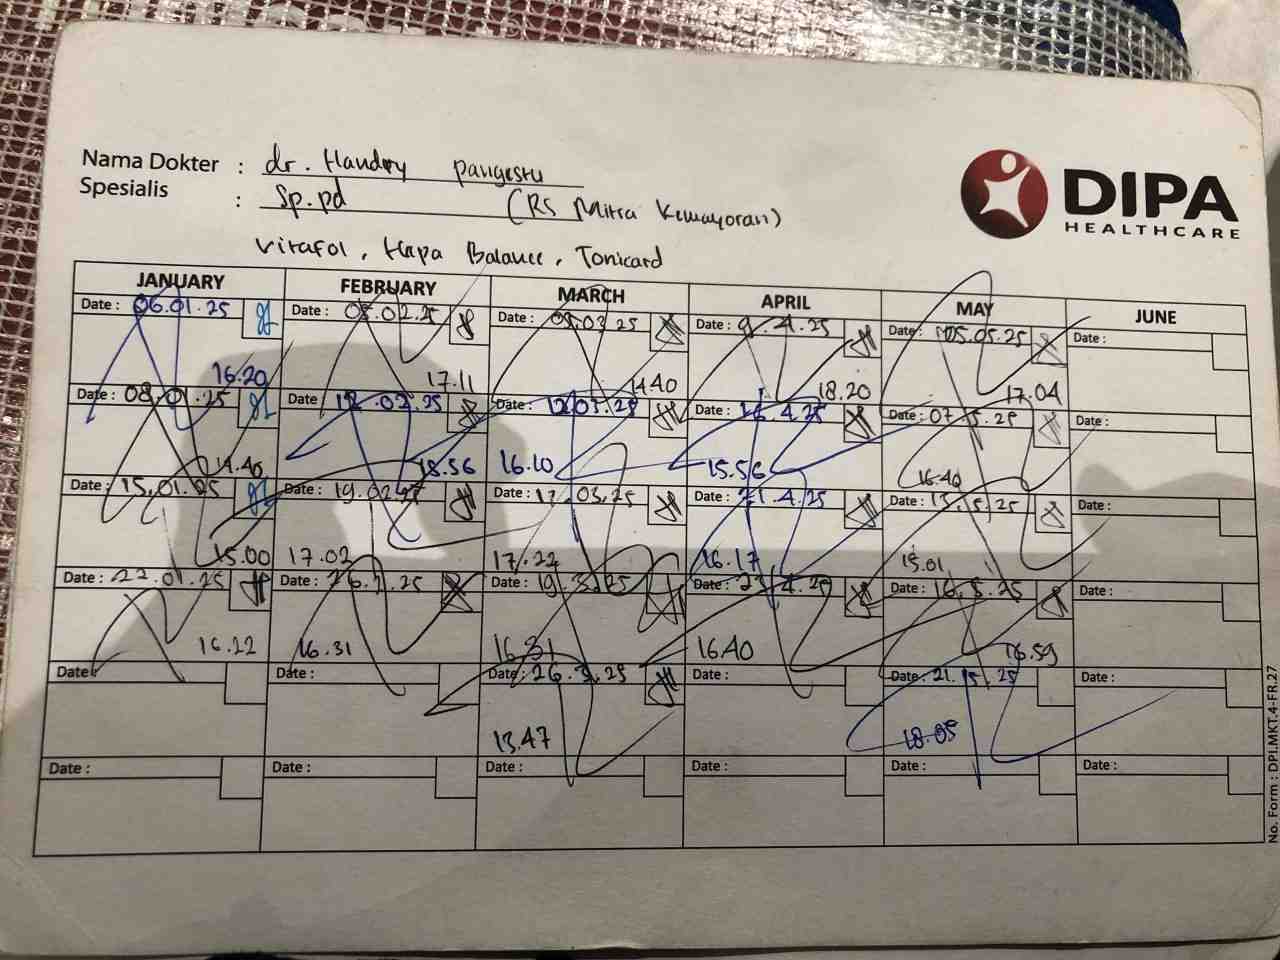 Nama Dokter : dr. Handry pangestu
Spesialis : Sp.pd (RS Mitra Kemayoran)
DIPA
HEALTHCARE
Vitafol, Hepa Balance, Tonicard
JANUARY FEBRUARY MARCH APRIL MAY JUNE
Date : 06.01.25 Date : 05.02.25 Date : 05.03.25 Date : 9.4.25 Date : 05.05.25 Date :
16.20 17.11 14.40 18.20 17.04
Date : 08.01.25 Date : 12.02.25 Date : 12.03.25 Date : 16.4.25 Date : 07.5.25 Date :
14.40 18.56 16.10 15.56 16.40
Date : 15.01.25 Date : 19.02.25 Date : 17.03.25 Date : 21.4.25 Date : 13.5.25 Date :
15.00 17.02 17.22 16.17 15.01
Date : 22.01.25 Date : 26.2.25 Date : 19.3.25 Date : 23.4.25 Date : 16.5.25 Date :
16.22 16.31 16.31 16.40 16.59
Date : Date : Date : 26.3.25 Date : Date : 21.5.25 Date :
13.47 18.05
Date : Date : Date : Date : Date : Date :
No. Form : DPI.MKT.4-FR.27